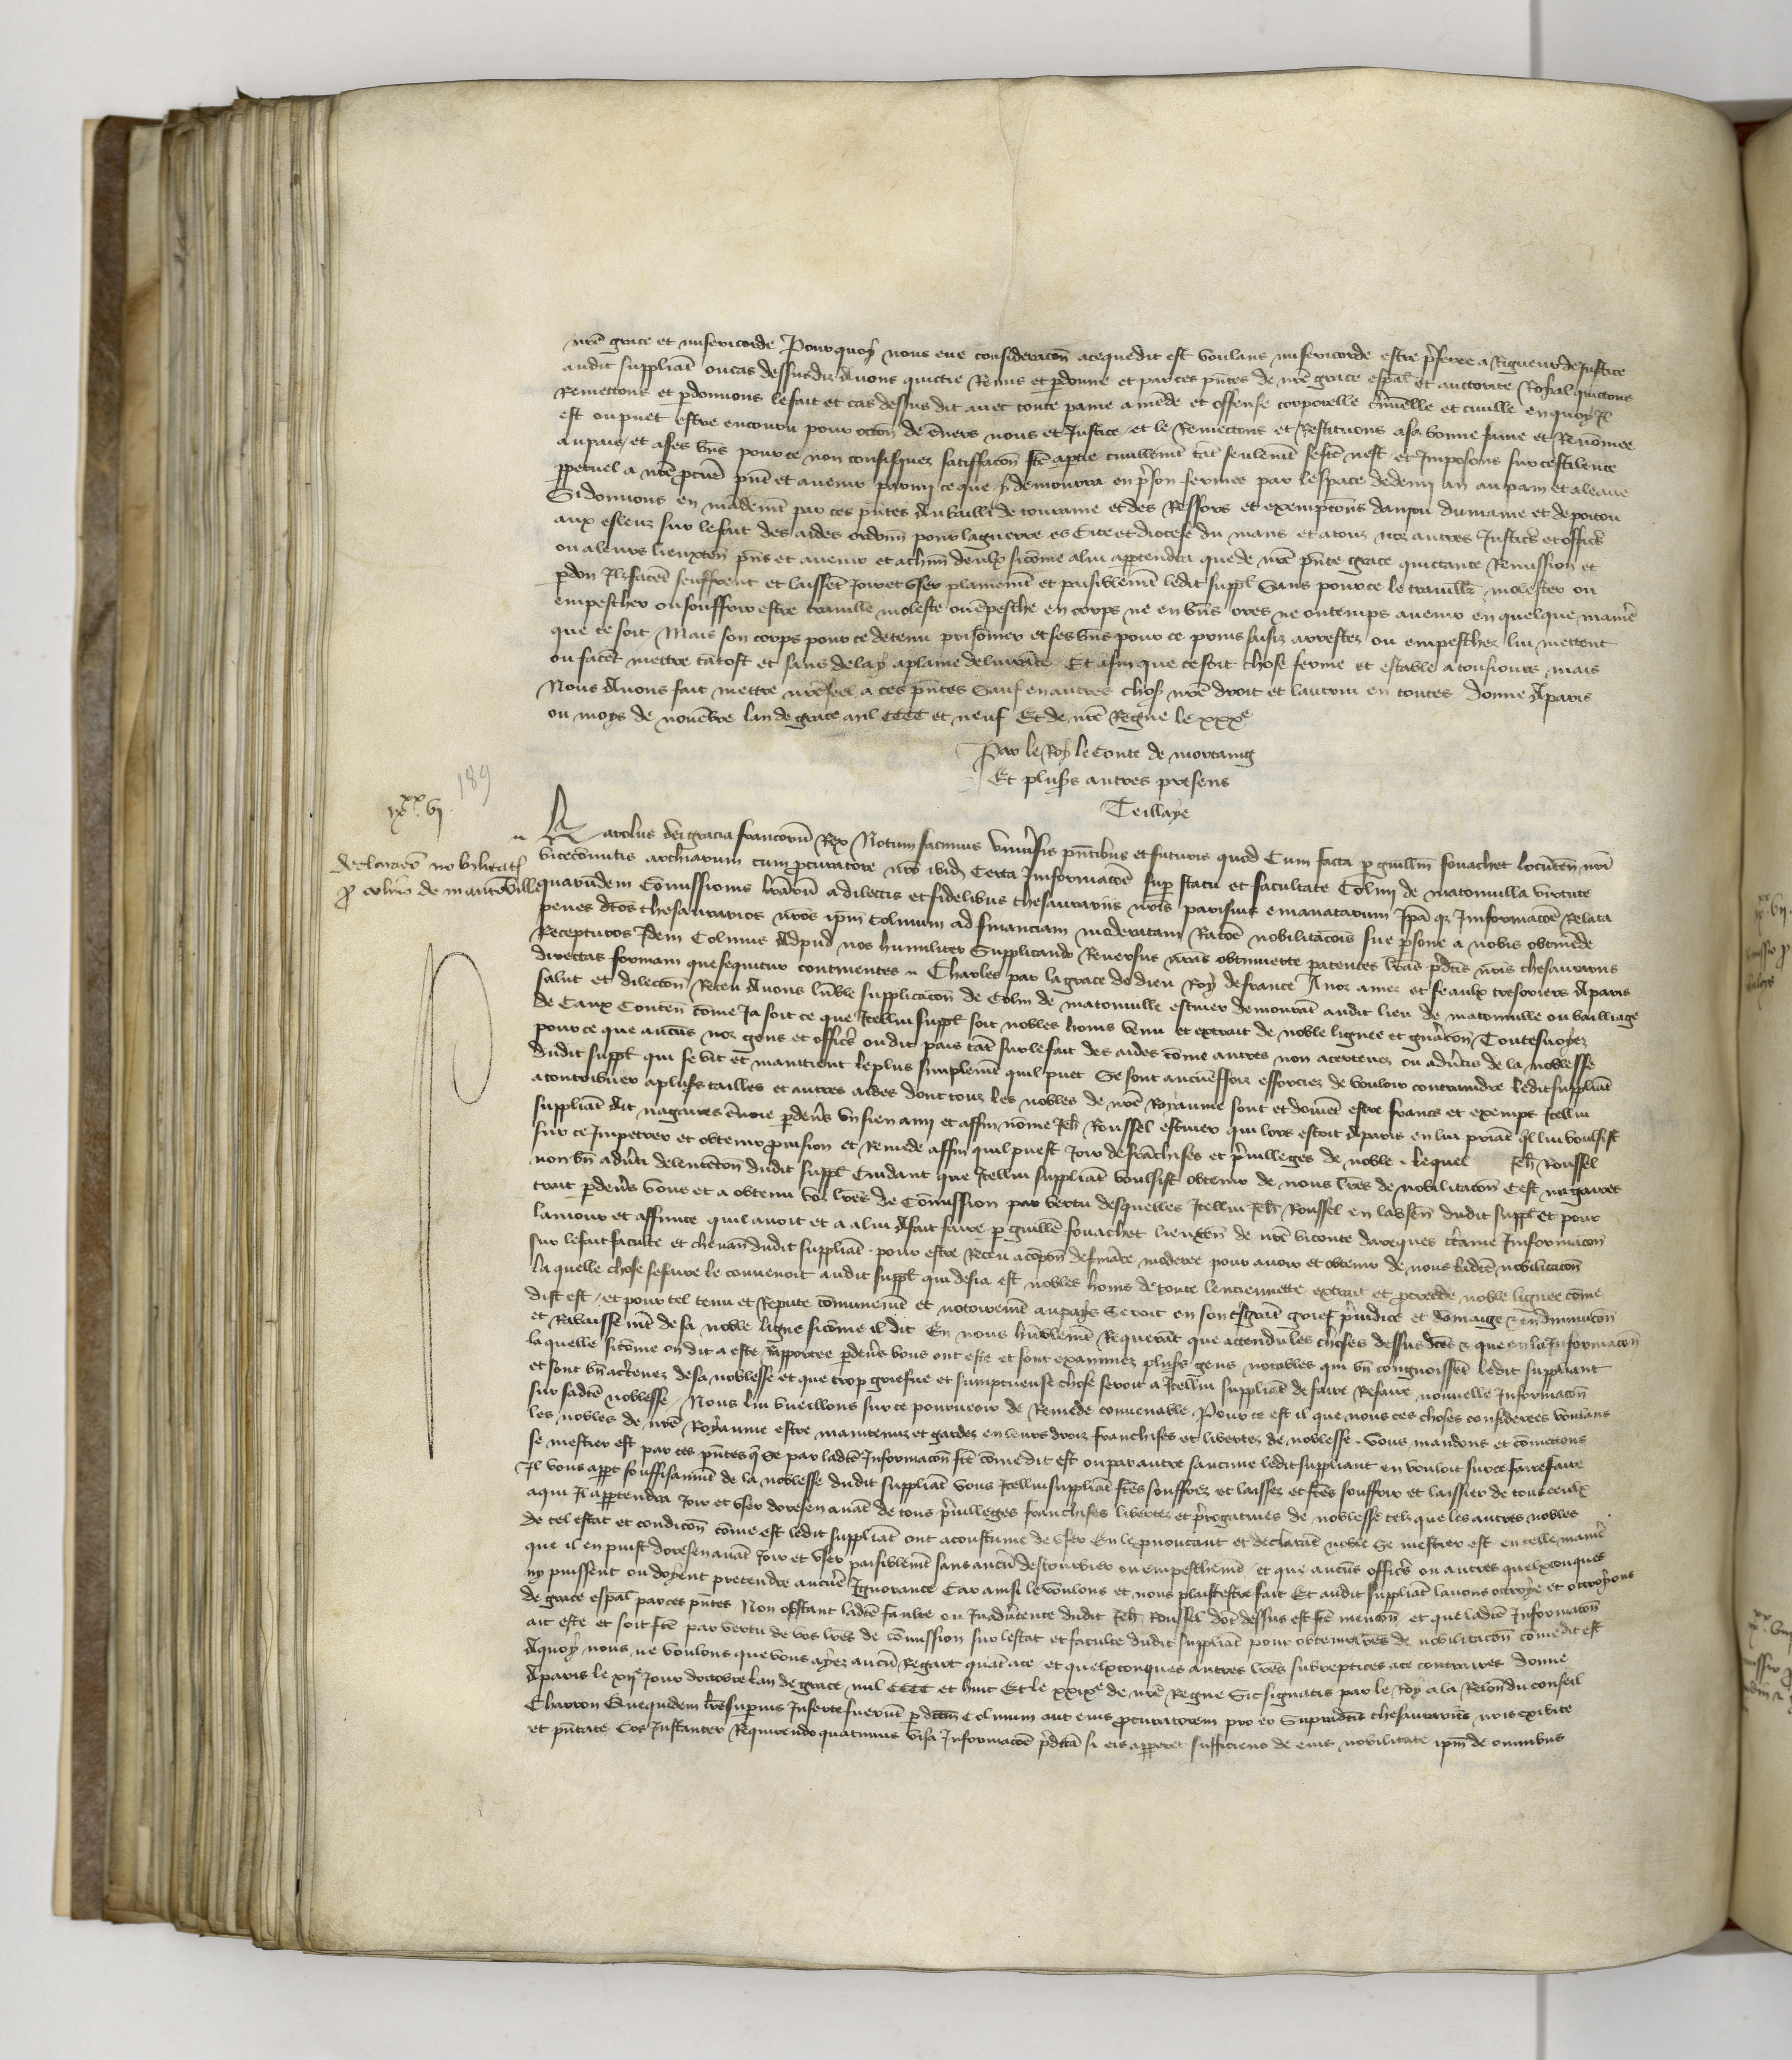 nrē grace et misericorde Pourquoy nous eue consideracōn acequedit est voulans misericorde estre p̄feree a Rigueur de Justice
audit suppliāt oucas dessusdiz Auons quicte Remis et pdonne et par ces pn̄tes de nrē grace esp̄al et auctorite Royal quictons
Remettons et pdonnons le fait et cas dessus dit auec toute paine amēde et offense corporelle crīnelle et ciuille enquoy Il
est ou puet estre encouru pour occōn de ēuers nous et Justice et le Remectons et Restituons asa bonne fame et Renōmee
au pais et a ses bn̄s pour ce non confisquez satisffacōn fcē aptie ciuillemt tāt seulemēt se fcē nest et Imposons sur ce silence
ppetuel a nrē pcuē pn̄t et auenir parmi ce que Il demourra en p̄son fermee par lespace de demi an au pain et aleaue
Si donnons en mādemēt par ces pn̄tes Au bailli de touraine et des Ressors et exempcōns daniou du maine et de poitou
aux esleuz sur le fait des aides ordonn̄ pour la guerre es Cite et diocese du mans et a touz noz autres Justic̄s et offic̄s
ou a leurs lieuxten̄ pn̄s et auenir et a chūn deulx sicōme a lui apptendra que de nrē pn̄te grace quictance Remission et
pdon Ilz facēt seuffrent et laissēt Jouir et vser plainemēt et paisiblemēt ledit suppl̄ Sans pour ce le trauill̄r molester ou
empescher ou souffrir estre trauille moleste ou ēpesche en corps ne en bn̄s ores ne ou temps auenir en quelque manīe
que ce soit Mais son corps pour ce detenu prisōnier et ses bn̄s pour ce prins saisiz arrestez ou empeschez lui mettent
ou facēt mettre tātost et sans delay a plaine deliurāce Et afin que ce soit chose ferme et estable a tousiours mais
Nous Auons fait mettre nrē seel a ces pn̄tes Sauf en autres chos̄ nrē droit et lautrui en toutes donne A paris
ou moys de nouēbre lan de grace mil CCCC et neuf Et de nrē Regne le xxxe
Par le Roy le Conte de mortaing
Et plus̄s autres presens
Teillaye
189
ixxx vj
declaracō nobilitat̄
p colino de matōuille
Karolus dei gracia francorū Rex Notum facimus Vniūsis pn̄tibus et futuris quod Cum facta p guill̄m fouachet locūten̄ nr̄i
vicecomitis archiarum cum pcuratore nr̄o ibid̄ Certa Informacōē sup statu et facultate Colini de matonuilla virtute
quarūdem Comissionis lrārū a dilectis et fidelibus thesaurariis nr̄is parisius emanatarum Ipāqz Informacōē Relata
penes dc̄os thesaurarios nr̄os ipm̄ Colinum ad financiam moderatam Racōē nobilitacōis sue psone a nobis obtinēde
Recepturos Idem Colinus Adpud nos humiliter Supplicando Reuersus nrās obtinuerit patentes lrās p̄dc̄is nr̄is thesaurariis
directas formam que sequitur continentes Charles par la grace de dieu Roy de france A noz amez et feaulx tresoriers A paris
salut et dilectōn Receu Auons lūble supplicacōn de Colin de matonuille escuier demourāt audit lieu de matonuille ou bailliage
de Caux Conten̄ cōme Ja soit ce que Icellui suppl̄ soit nobles homs venu et extrait de noble lignee et gn̄acōn Toutesuoyez
pour ce que aucūs noz gens et offic̄s oudit pais tāt sur le fait des aides cōme autres non acertenez ou adūtis de la noblesse
dudit suppl̄ qui se vit et maintient le plus simplemēt quil puet Se sont aucūeffoiz efforciez de vouloir contraindre ledit suppliāt
a contribuer a plus̄s tailles et autres aides dont touz les nobles de nrē Royaume sont et doiuēt estre francs et exemps Icellui
suppliāt dit nagaires ēuoie pdeu̅s vn sien ami et affin nōme Jeh̄ Roussel escuier qui lors estoit A paris en lui priāt q̄l lui voulsist
sur ce Impetrer et obtenir prouision et Remede affin quil puest Joir de frāchises et p̄uilleges de noble Lequel Jeh̄ Roussel
non bn̄ adūti de lentēcōn dudit suppl̄ Cuidant que Icellui suppliāt voulsist obtenir de nous lrēs de nobilitacōn Cest nagaires
trait pdeu̅s vous et a obtenu voz lrēs de Cōmission par vertu desquelles Icellui Jeh̄ Roussel en labsen̄ dudit suppl̄ et pour
lamour et affinite quil auoit et a a lui A fait faire p guill̄e fouachet lieuten̄ de nrē viconte darques ctaine Informacōn
sur le fait faculte et cheuan̄ dudit suppliāt pour estre Receu a cōpōn de fināce moderee pour auoir et obtenir de nous ladcē nobilitacōn
la quelle chose se faire le conuenoit audit suppl̄ qui desia est nobles homs de toute lanciennete extrait et procede de noble lignee cōme
dist est et pour tel tenu et Repute cōmunemēt et notoiremēt au pays Seroit en son tresgrāt grief p̄iudice et dōmaige en dimīnucōn
et Rabaissemēt de sa noble ligne sicōme il dit En nous hūblemēt Requerāt que attendu les choses dessus dcēs que en la Informacōn
la quelle sicōme on dit a este apportee pdeu̅s vous ont este et sont examinez plus̄s gens notables qui bn̄ congnoissēt ledit suppliant
et sont bn̄ ac̄tenez de sa noblesse et que trop griefue et sumptueuse chose seroit a Icellui suppliāt de faire Refaire nouuelle Informacōn
sur sadcē noblesse Nous lui vueillons sur ce pourueoir de Remede conuenable Pour ce est il que nous ces choses considerees voulans
les nobles de nrē Royaume estre maintenuz et gardez en leurs droiz franchises et libertez de noblesse Vous mandons et cōmettons
se mestier est par ces pn̄tes q̄ se par ladcē Informacōn fcē cōme dit est ou par autre saucune ledit suppliant en vouloit sur ce faire faire
Il vous appt souffisanmēt de la noblesse dudit suppliāt vous Icellui suppliāt fcēs souffrez et laissez et fcēs souffrir et laissier de tous ceulx
a qui Il apptendra Joir et vser doresenauāt de tous p̄uilleges franchises libertez et p̄rogatiues de noblesse telz que les autres nobles
de tel estat et condicōn cōme est ledit suppliāt ont acoustume de vser En le pnoncant et declarāt noble Se mestier est en telle manīe
que il en puist doresenauāt Joir et vser paisiblemēt sans aucū destourbier ou empeschemēt et que aucūs offic̄s ou autres quelxconques
ny puissent ou doyent pretendre aucūe Ignorance Car ainsi le voulons et nous plaist estre fait Et audit suppliāt lauons ottroye et ottroyons
de grace esp̄al par ces pn̄tes Non obstant ladcē faulte ou Inadūtence dudit Jeh̄ Roussel dōt dessus est fcē mencōn et que ladcē Informacōn
ait este et soit fcē par vertu de voz lrēs de cōmission sur lestat et faculte dudit suppliāt pour obtenir lrēs de nobilitacōn cōme dit est
A quoy nous ne voulons que vous ayez aucū Regart quāt a ce et quelxconques autres lrēs subreptices a ce contraires donne
A paris le xije Jour doctobre lan de grace mil CCCC et huit Et le xxixe de nrē Regne Sic signatis par le Roy a la Relōn du conseil
Charron Quequidem lrē superius Inserte fuerūt p dc̄m Colinum aut eius pcuratorem pro eo Supradc̄is thesaurariis nr̄is exibite
et pn̄tate Eos Instanter Requirendo quatinus visa Informacōē p̄dcā si eis apperet sufficiens de eius nobilitate ipm̄ de omnibus